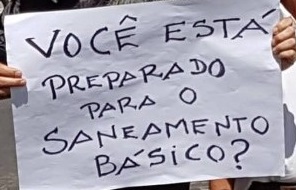 VOCÊ ESTÁ
PREPARADO
PARA O
SANEAMENTO
BÁSICO?